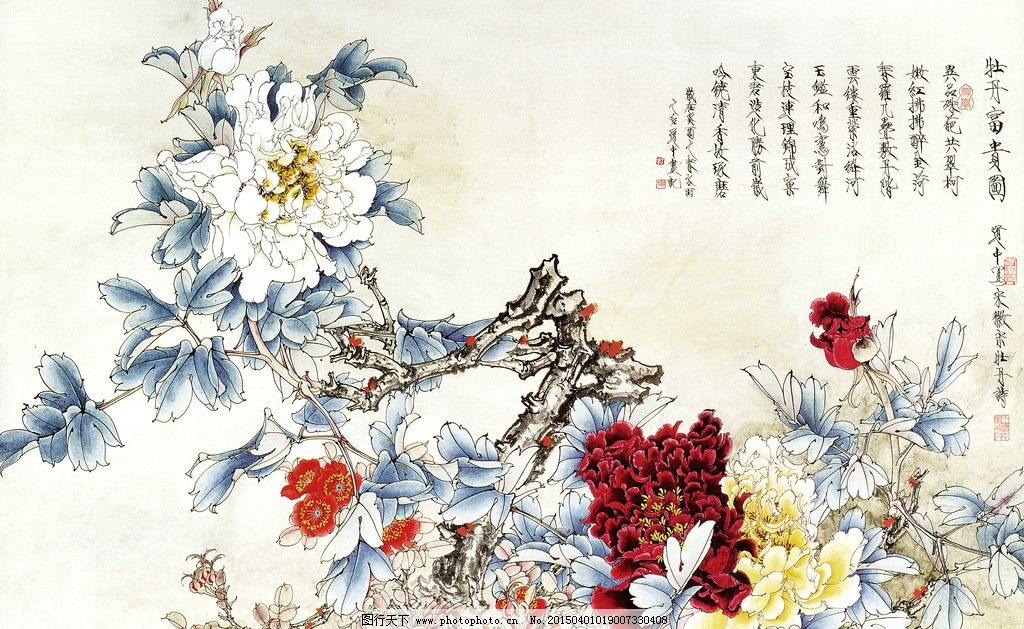 牡丹富贵圖
宋徽宗牡丹詩
異品殊葩共翠柯
嫩紅拂拂醉金荷
春羅几疊敷丹陛
雲縷重縈浴絳河
玉鑑和鳴鸞對舞
宝枝連理錦成窠
東君造化勝前歲
吟繞清香故琢磨
图行天下 www.photophoto.cn No.20150401019007330408